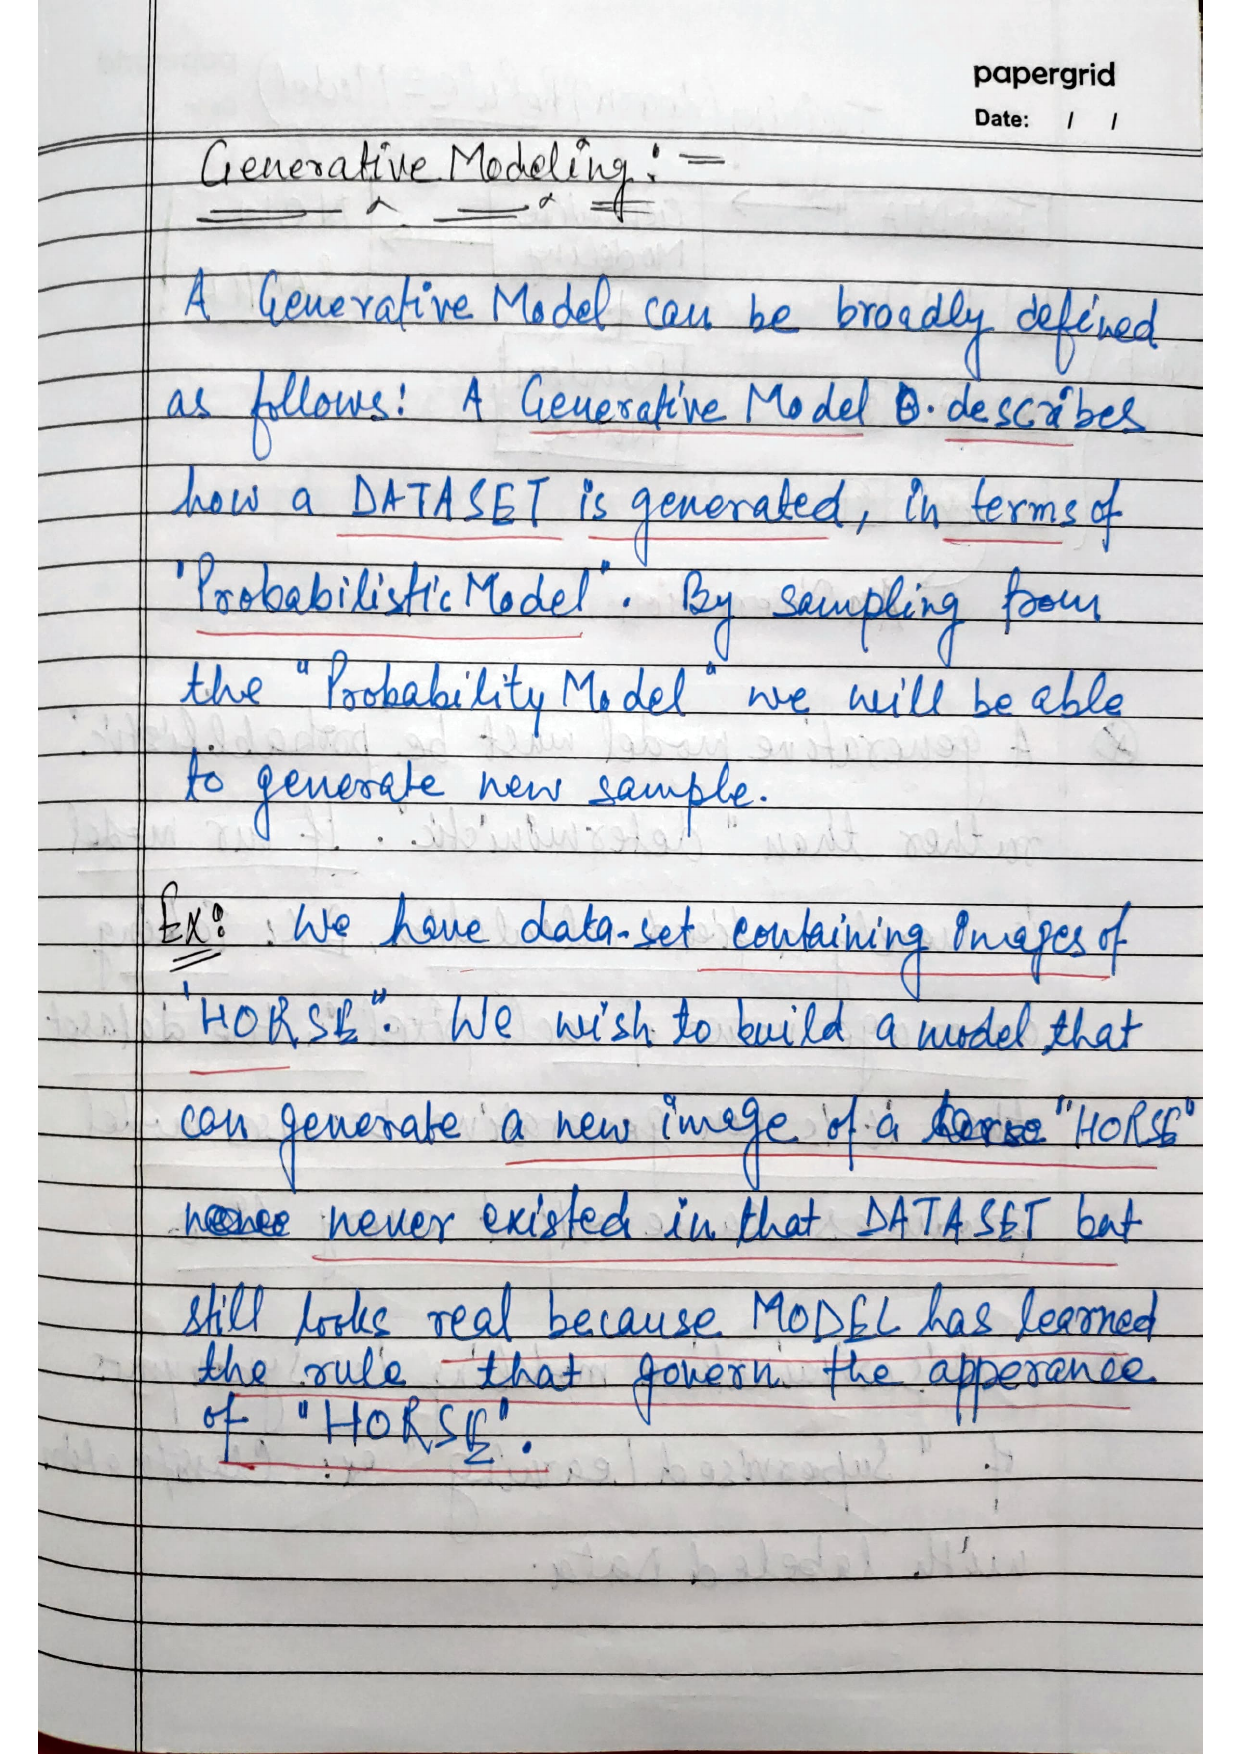 papergrid
Date: / /
Generative Modeling: =
A Generative Model can be broadly defined
as follows: A Generative Model describes
how a DATASET is generated, in terms of
"Probabilistic Model". By sampling from
the "Probability Model" we will be able
to generate new sample.
Ex: . We have data-set containing images of
"HORSE". We wish to build a model that
can generate a new image of a horse "HORSE"
never existed in that DATASET but
still looks real because MODEL has learned
the rule that govern the apperance
of "HORSE".